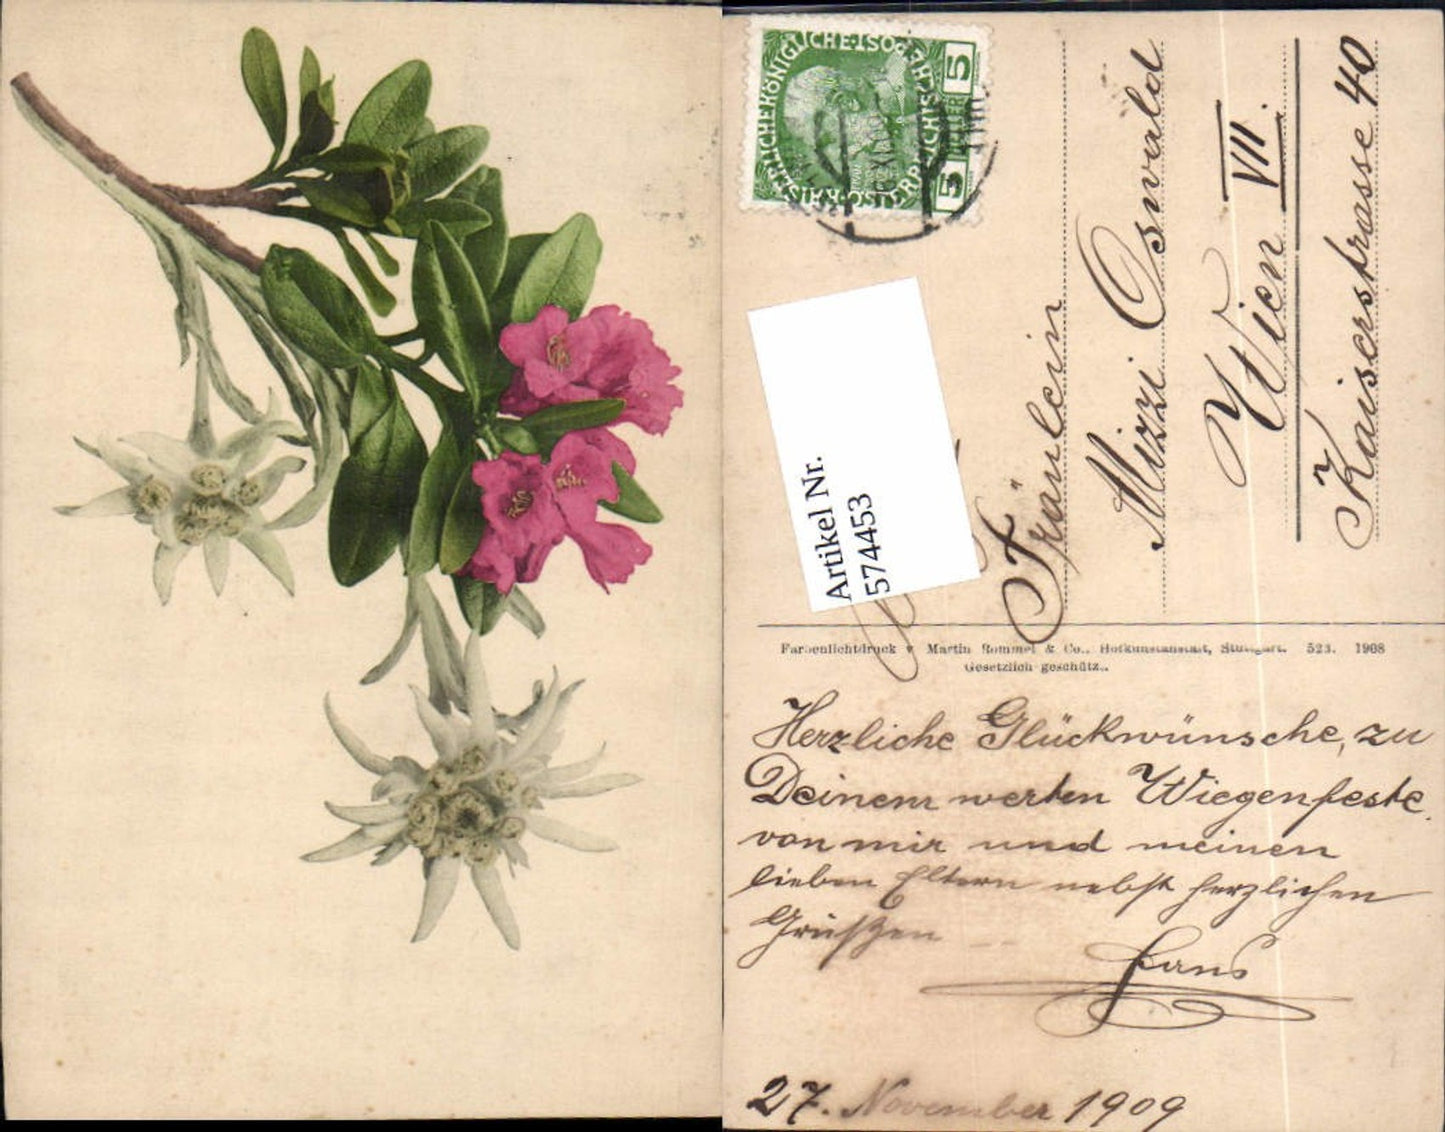 KAISERLICHE KÖNIGLICHE ISO
5 5
Artikel Nr.
574453
Fräulein
Mizzi Oswald
Wien VII.
Kaiserstrasse 40
Farbenlichtdruck v. Martin Rommel & Co., Hofkunstanstalt, Stuttgart. 523. 1908
Gesetzlich geschützt.
Herzliche Glückwünsche, zu
Deinem werten Wiegenfeste
von mir und meinen
lieben Eltern nebst herzlichen
Grüßen
Hans
27. November 1909